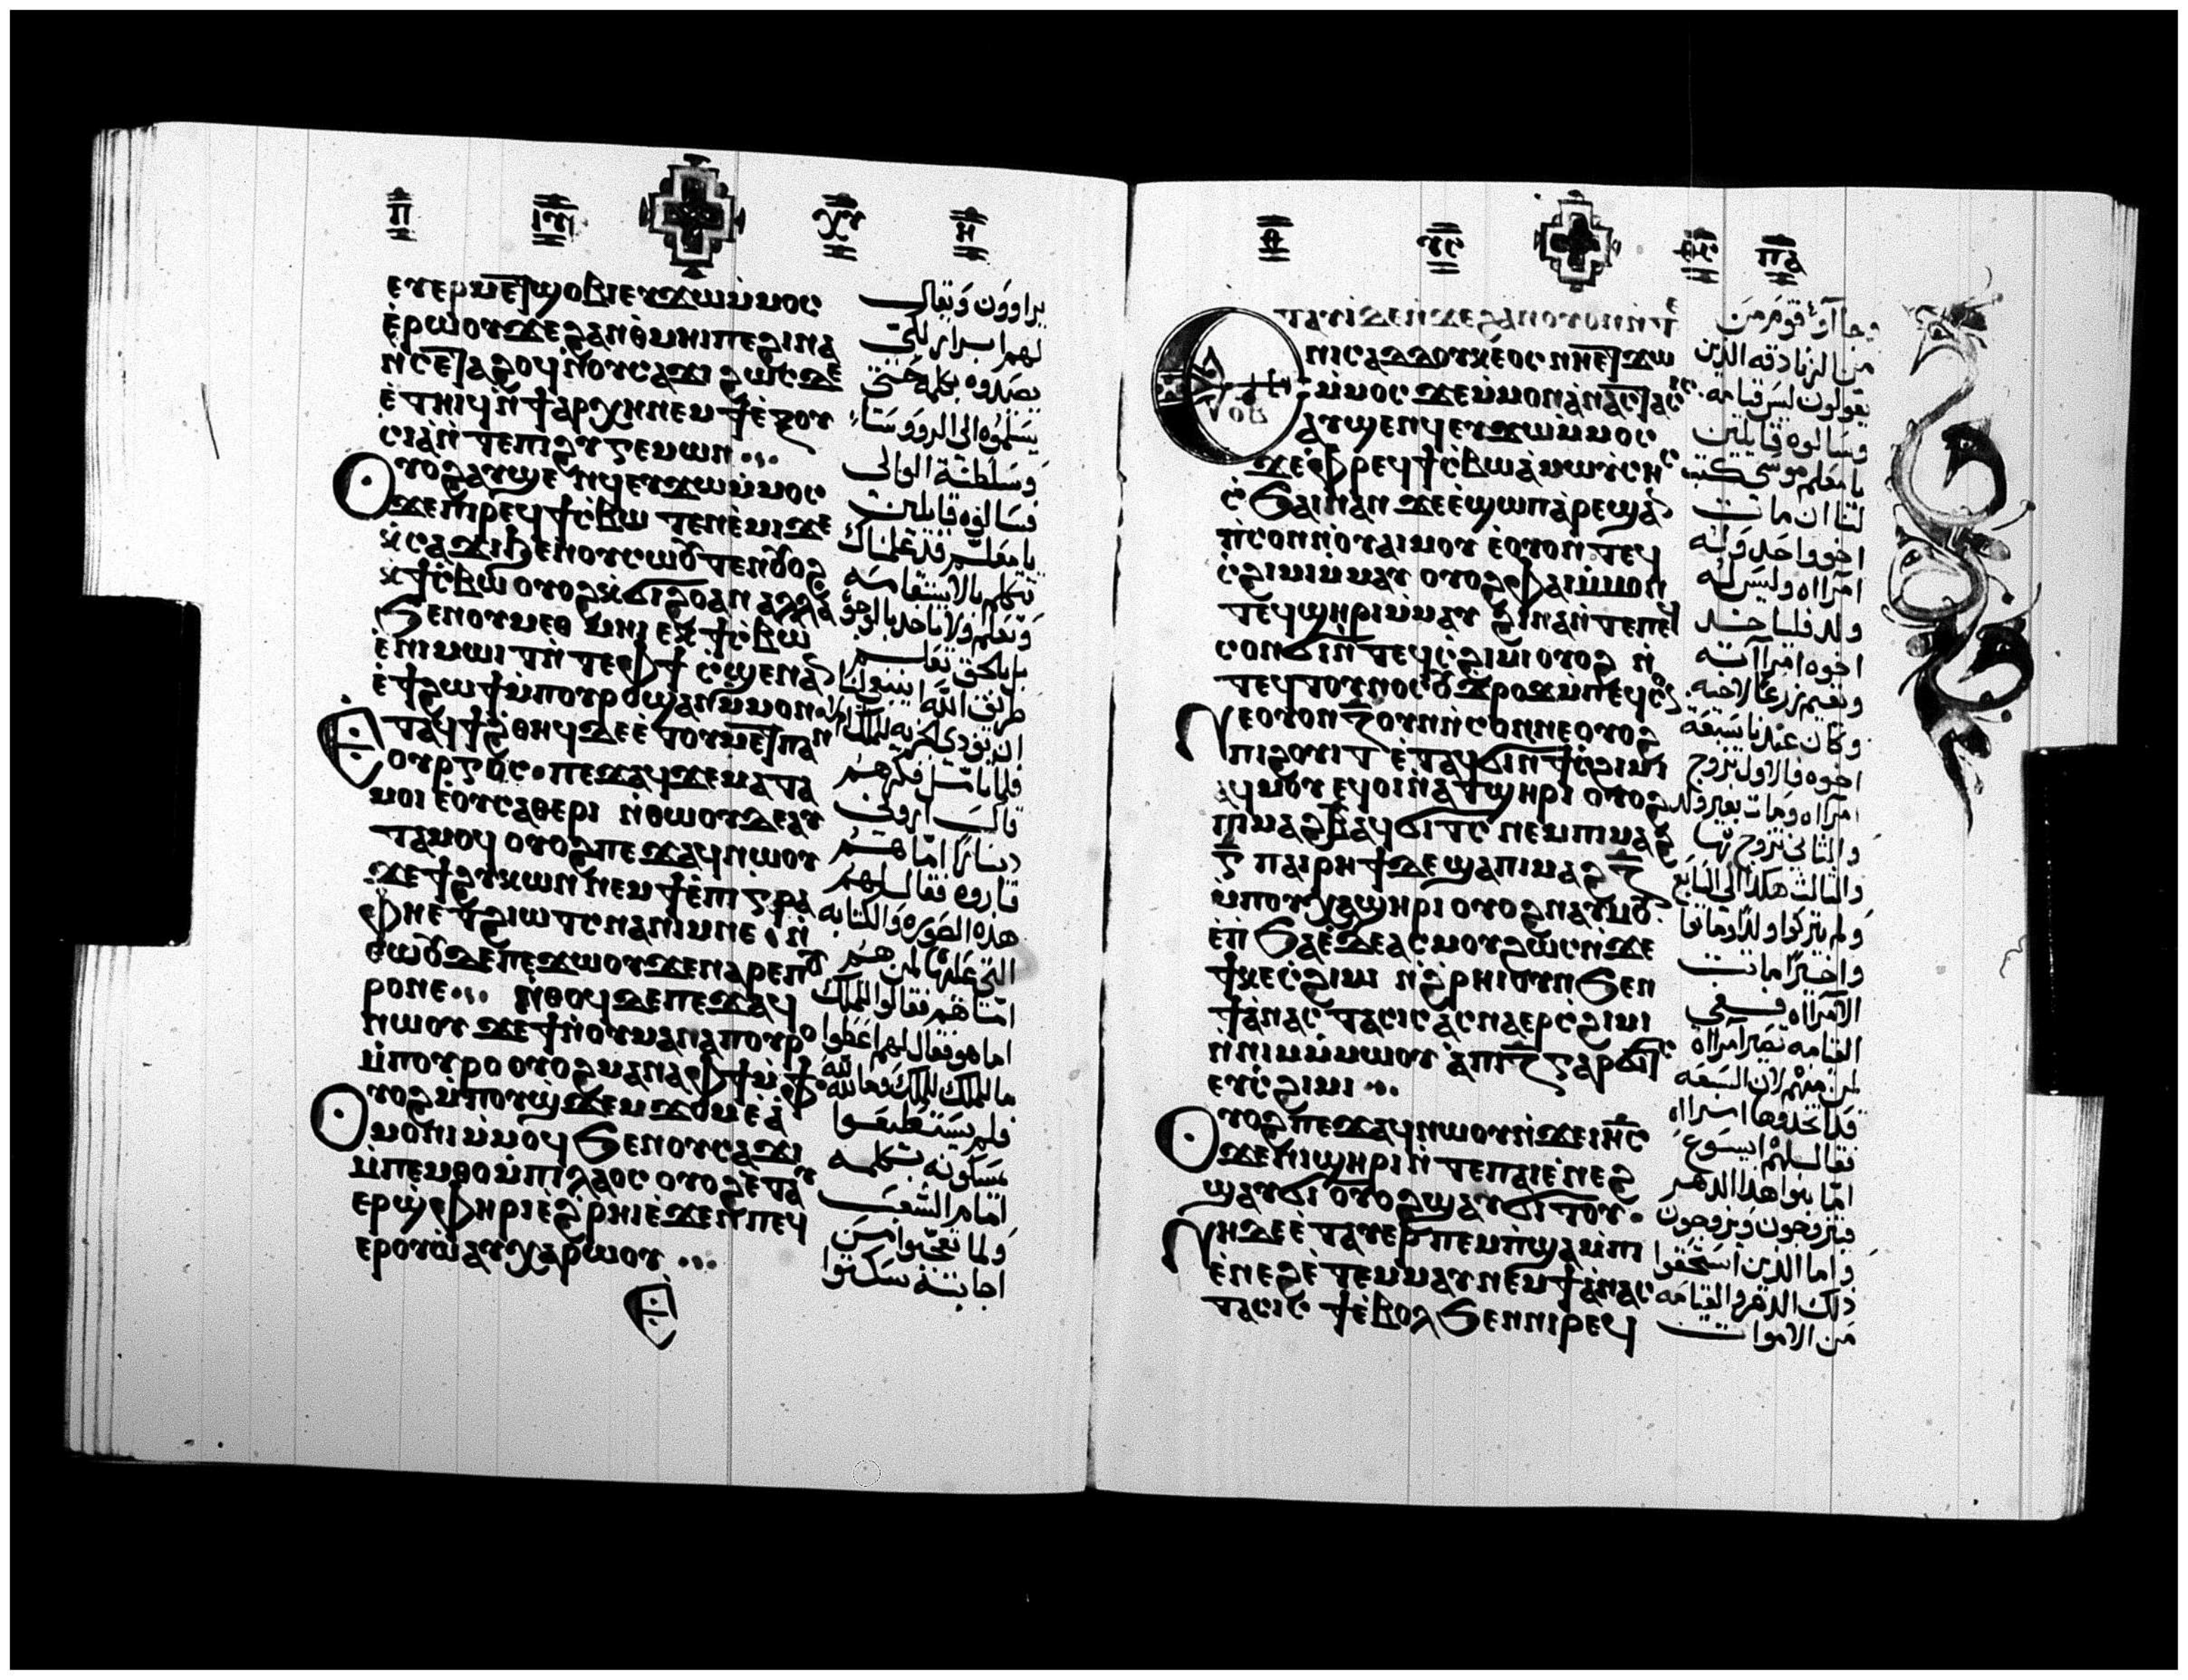 ⲡ ⲓⲏ̅ⲥ̅ ⲭ̅ⲥ̅ ⲏ
ⲉⲩⲉⲣⲙⲉⲧϣⲟⲃⲓ ⲉⲩϫⲱ ⲙ̀ⲙⲟⲥ
ⲉ̀ⲣⲱⲟⲩ ϫⲉ ϩⲁⲛⲑⲙⲏⲓ ⲡⲉ ϩⲓⲛⲁ
ⲛ̀ⲥⲉⲧⲁϩⲟϥ ⲛ̀ⲟⲩⲥⲁϫⲓ ϩⲱⲥⲇⲉ
ⲉ̀ⲧⲏⲓϥ ⲛ̀ϯⲁⲣⲭⲏ ⲛⲉⲙ ϯⲉⲝⲟⲩ
ⲥⲓⲁ ⲛ̀ⲧⲉ ⲡⲓϩⲩⲅⲉⲙⲱⲛ
ⲟⲩⲟϩ ⲁⲩϣⲉⲛϥ ⲉⲩϫⲱ ⲙ̀ⲙⲟⲥ
ϫⲉ ⲡⲓⲣⲉϥϯⲥⲃⲱ ⲧⲉⲛⲉ̀ⲙⲓ ϫⲉ
ⲭ̀ⲥⲁϫⲓ ϧⲉⲛ ⲟⲩⲥⲱⲟⲩⲧⲉⲛ ⲟⲩⲟϩ
ⲭ̀ϯⲥⲃⲱ ⲟⲩⲟϩ ⲭ̀ϭⲓϩⲟ ⲁⲛ ⲁⲗⲗⲁ
ϧⲉⲛ ⲟⲩⲙⲉⲑⲙⲏⲓ ⲉⲕϯⲥⲃⲱ
ⲉ̀ⲡⲓⲙⲱⲓⲧ ⲛ̀ⲧⲉ ⲫϯ ⲥϣⲉ ⲛⲁⲛ
ⲉ̀ϯϩⲱϯ ⲙ̀ⲡⲟⲩⲣⲟ ϣⲁⲛ ⲙ̀ⲙⲟⲛ
ⲉⲧⲁϥϯϩⲑⲏϥ ⲇⲉ ⲉ̀ⲧⲟⲩⲙⲉⲧⲡⲁⲛ
ⲟⲩⲣⲅⲟⲥ ⲡⲉϫⲁϥ ϫⲉ ⲙⲁⲧⲁ
ⲙⲟⲓ ⲉ̀ⲟⲩⲥⲁⲑⲉⲣⲓ ⲛ̀ⲑⲱⲟⲩ ⲇⲉ ⲁⲩ
ⲧⲁⲙⲟϥ ⲟⲩⲟϩ ⲡⲉϫⲁϥ ⲛⲱⲟⲩ
ϫⲉ ϯϩⲩⲕⲱⲛ ⲛⲉⲙ ϯⲉ̀ⲡⲓⲅⲣⲁ
ⲫⲏ ⲉⲧϩⲓⲱⲧⲥ ⲛⲁ ⲛⲓⲙ ⲛⲉ ⲛ̀
ⲑⲱⲟⲩ ⲇⲉ ⲡⲉϫⲱⲟⲩ ϫⲉ ⲛⲁ ⲡⲉⲡⲟⲩ
ⲣⲟ ⲛⲉ ⲛ̀ⲑⲟϥ ⲇⲉ ⲡⲉϫⲁϥ
ⲛⲱⲟⲩ ϫⲉ ϯ ⲛ̀ⲟⲩⲛ ⲙⲁ ⲛⲁ ⲡⲟⲩⲣⲟ
ⲙ̀ⲡⲟⲩⲣⲟ ⲟⲩⲟϩ ⲙⲁ ⲛⲁ ⲫϯ ⲙ̀ⲫϯ
ⲟⲩⲟϩ ⲙ̀ⲡⲟⲩϣϫⲉⲙϫⲟⲙ ⲉ̀ⲁ̀
ⲙⲟⲛⲓ ⲙ̀ⲙⲟϥ ϧⲉⲛ ⲟⲩⲥⲁϫⲓ
ⲙ̀ⲡⲉⲙⲑⲟ ⲙ̀ⲡⲓⲗⲁⲟⲥ ⲟⲩⲟϩ ⲉ̀ⲧⲁⲩ
ⲉⲣϣⲫⲏⲣⲓ ⲉ̀ϩⲣⲏⲓ ⲉ̀ϫⲉⲛ ⲡⲉϥ
ⲉⲣⲟⲩⲱ ⲁⲩⲭⲁⲣⲱⲟⲩ
ⲉ
يراوون وتقال
لهم ابرار لكي
يصطادوه بكلمة حتى
يسلموه الى الرووسا
وسلطنة الوالى
فسالوه قايلين
يا معلم قد علمنا انك
تتكلم بالاستقامه
وتعلم ولا تاخذ بالوجوه
بل بالحق تعلم
طريق الله اينبغي لنا
ان نودى الجزيه للملك ام لا
فلما تامل مكرهم
قال اروني
دينارًا اما هم
فاروه فقال لهم
هذه الصوره والكتابه
التي عليها لمن هم
اما هم فقالوا للملك
اما هو فقال لهم اعطوا
ما للملك للملك وما لله لله
فلم يستطيعوا
يمسكونه بكلمه
امام الشعب
ولما تعجبوا من
اجابته سكتوا
ⲑ̅ ⲩ̅ⲥ̅ ⲡⲁ
ⲉⲧⲁⲩⲓ̀ ⲇⲉ ⲛ̀ϫⲉ ϩⲁⲛⲟⲩⲟⲛ ⲛ̀ⲧⲉ
ⲛⲓⲥⲁⲇⲇⲟⲩⲕⲉⲟⲥ ⲛⲏ ⲉⲧϫⲱ
ⲙ̀ⲙⲟⲥ ϫⲉ ⲙ̀ⲙⲟⲛ ⲁ̀ⲛⲁⲥⲧⲁⲥⲓⲥ
ⲁⲩϣⲉⲛϥ ⲉⲩϫⲱ ⲙ̀ⲙⲟⲥ
ϫⲉ ⲫⲣⲉϥϯⲥⲃⲱ ⲁ̀ ⲙⲱⲩ̀ⲥⲏⲥ
ⲥϧⲁⲓ ⲛⲁⲛ ϫⲉ ⲉ̀ϣⲱⲡ ⲁⲣⲉϣⲁⲛ
ⲛ̀ⲥⲟⲛ ⲛ̀ⲟⲩⲁⲓ ⲙⲟⲩ ⲉ̀ⲟⲩⲟⲛ ⲧⲉϥ
ⲥϩⲓⲙⲓ ⲙ̀ⲙⲁⲩ ⲟⲩⲟϩ ⲫⲁⲓ ⲙ̀ⲙⲟⲛ
ⲧⲉϥϣⲏⲣⲓ ⲙ̀ⲙⲁⲩ ϩⲓⲛⲁ ⲛ̀ⲧⲉ ⲡⲉϥ
ⲥⲟⲛ ϭⲓ ⲛ̀ⲧⲉϥⲥϩⲓⲙⲓ ⲟⲩⲟϩ ⲛ̀
ⲧⲉϥⲧⲟⲩⲛⲟⲥ ⲟⲩϫⲣⲟϫ ⲙ̀ⲡⲉϥⲥⲟⲛ
ⲛⲉ ⲟⲩⲟⲛ ⲍ ⲟⲩⲛ ⲛ̀ⲥⲟⲛ ⲛⲉ ⲟⲩⲟϩ
ⲡⲓϩⲟⲩⲓⲧ ⲉ̀ⲧⲁϥϭⲓ ⲛ̀ϯⲥϩⲓⲙⲓ
ⲁϥⲙⲟⲩ ⲉϥⲟⲓ ⲛ̀ⲁⲧϣⲏⲣⲓ ⲟⲩⲟϩ
ⲡⲓⲙⲁϩⲃ ⲁϥϭⲓⲧⲥ ⲛⲉⲙ ⲡⲓⲙⲁϩ
ⲅ̅ ⲡⲁⲓⲣⲏϯ ⲇⲉ ϣⲁ ⲡⲓⲙⲁϩ ⲍ̅
ⲙ̀ⲡⲟⲩⲭⲁϣⲏⲣⲓ ⲟⲩⲟϩ ⲛⲁⲩⲙⲟⲩ
ⲉ̀ⲡϧⲁⲉ̀ ⲇⲉ ⲁⲥⲙⲟⲩ ϩⲱⲥ ⲛ̀ϫⲉ
ϯⲕⲉⲥϩⲓⲙⲓ ⲛ̀ϩⲣⲏⲓ ⲟⲩⲛ ϧⲉⲛ
ϯⲁ̀ⲛⲁⲥⲧⲁⲥⲓⲥ ⲁⲥⲛⲁⲉⲣⲥϩⲓⲙⲓ
ⲛ̀ⲛⲓⲙ ⲙ̀ⲙⲱⲟⲩ ⲁ̀ ⲡⲓⲍ̅ ⲅⲁⲣ ϭⲓⲧⲥ
ⲉⲩⲥϩⲓⲙⲓ
ⲟⲩⲟϩ ⲡⲉϫⲁϥ ⲛⲱⲟⲩ ⲛ̀ϫⲉ ⲓⲏ̅ⲥ̅
ϫⲉ ⲛⲓϣⲏⲣⲓ ⲛ̀ⲧⲉ ⲡⲁⲓⲉ̀ⲛⲉϩ
ϣⲁⲩϭⲓ ⲟⲩⲟϩ ϣⲁⲩϭⲓⲧⲟⲩ
ⲛⲏ ⲇⲉ ⲉ̀ⲧⲁⲩⲉⲣⲡⲉⲙⲡϣⲁ ⲙ̀ⲡⲓ
ⲉ̀ⲛⲉϩ ⲉ̀ⲧⲉⲙⲙⲁⲩ ⲛⲉⲙ ϯⲁ̀ⲛⲁⲥ
ⲧⲁⲥⲓⲥ ϯⲉ̀ⲃⲟⲗ ϧⲉⲛ ⲛⲓⲣⲉϥ
وجا قوم من
من الزنادقه الذين
يقولون ليس قيامه
وسالوه قايلين
يا معلم موسى كتب
لنا ان مات
اخو واحد وله
امراه وليس له
ولد فلياخذ
اخوه امراته
ويقيم زرعًا لاخيه
وكان عندنا سبعة
اخوه فالاول تزوج
امراه ومات بغير ولد
والثاني تزوج بها
والثالث هكذا الى السابع
ولم يتركوا ولدًا وماتوا
واخيرًا ماتت
الامراه ففي
القيامه تصير امراه
لمن منهم لان السبعه
قد اتخذوها امراه
فقال لهم ايسوع
اما بنوا هذا الدهر
فيتزوجون ويزوجون
واما الذين استحقوا
ذلك الدهر والقيامه
من الاموات